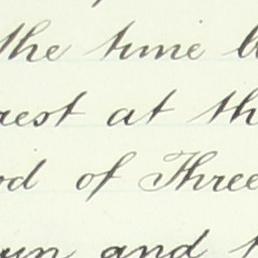 the time b
rest at th
od of Three
un and t